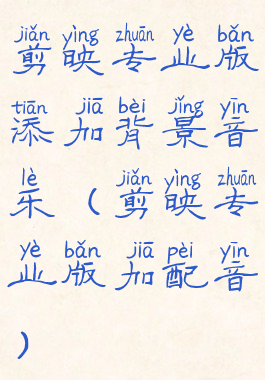 jiǎn yìng zhuān yè bǎn
剪映专业版
tiān jiā bèi jǐng yīn
添加背景音
lè jiǎn yìng zhuān
乐（剪映专
yè bǎn jiā pèi yīn
业版加配音
）